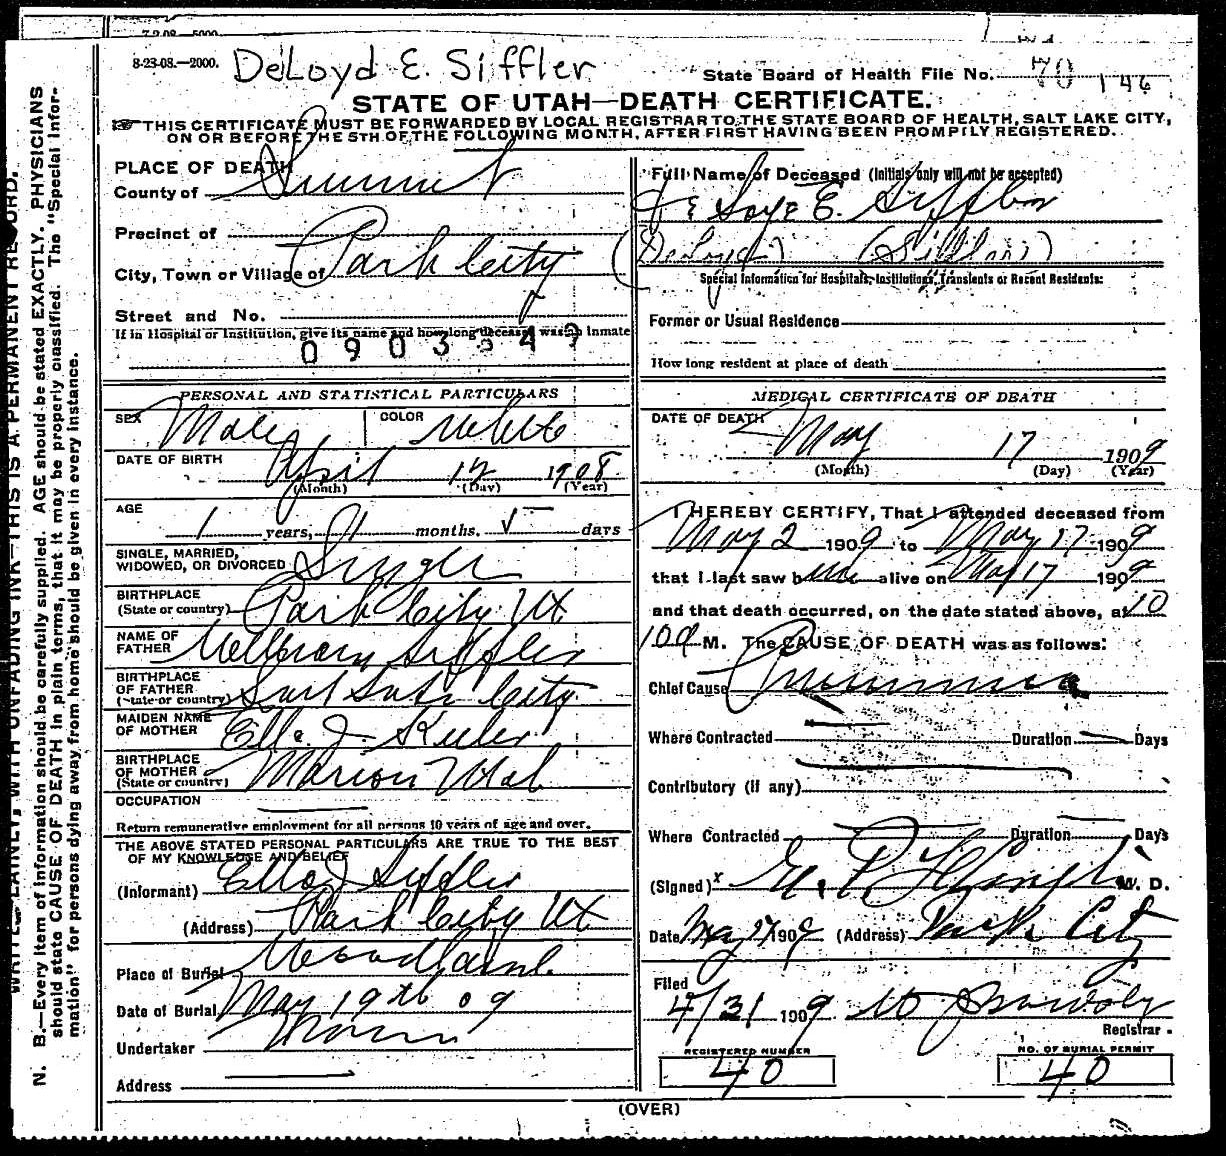 8-23-08.—2000.
DeLoyd E. Siffler
State Board of Health File No. 70 146
STATE OF UTAH—DEATH CERTIFICATE.
THIS CERTIFICATE MUST BE FORWARDED BY LOCAL REGISTRAR TO THE STATE BOARD OF HEALTH, SALT LAKE CITY,
ON OR BEFORE THE 5TH OF THE FOLLOWING MONTH, AFTER FIRST HAVING BEEN PROMPTLY REGISTERED.
N. B.—Every item of information should be carefully supplied. AGE should be stated EXACTLY. PHYSICIANS
should state CAUSE OF DEATH in plain terms, that it may be properly classified. The "Special Infor-
mation" for persons dying away from home should be given in every instance.
PLACE OF DEATH
County of Summit
Precinct of
City, Town or Village of Park City
Street and No.
If in Hospital or Institution, give its name and how long deceased was an inmate
PERSONAL AND STATISTICAL PARTICULARS
SEX Male COLOR White
DATE OF BIRTH April 12 1908
(Month) (Day) (Year)
AGE
1 years, 1 months. 5 days
SINGLE, MARRIED,
WIDOWED, OR DIVORCED Single
BIRTHPLACE
(State or country) Park City Ut
NAME OF
FATHER Siffler
BIRTHPLACE
OF FATHER
(State or country) Salt Lake City
MAIDEN NAME
OF MOTHER Ella J.
BIRTHPLACE
OF MOTHER
(State or country) Marion Utah
OCCUPATION
Return remunerative employment for all persons 10 years of age and over.
THE ABOVE STATED PERSONAL PARTICULARS ARE TRUE TO THE BEST
OF MY KNOWLEDGE AND BELIEF
(Informant) Ella J Siffler
(Address) Park City Ut
Place of Burial Woodland
Date of Burial May 19th 09
Undertaker
Address
Full Name of Deceased (Initials only will not be accepted)
E. Siffler
(DeLoyd)
Special Information for Hospitals, Institutions, Transients or Recent Residents:
Former or Usual Residence
How long resident at place of death
MEDICAL CERTIFICATE OF DEATH
DATE OF DEATH
May 17 1909
(Month) (Day) (Year)
I HEREBY CERTIFY, That I attended deceased from
May 2 1909 to May 17 1909
that I last saw him alive on May 17 1909
and that death occurred, on the date stated above, at 10
M. The CAUSE OF DEATH was as follows:
Chief Cause Pneumonia
Where Contracted Duration Days
Contributory (if any)
Where Contracted Duration Days
(Signed) M. D.
Date May 1909 (Address) Park City
Filed
4/31 1909
Registrar.
REGISTERED NUMBER
40
NO. OF BURIAL PERMIT
40
(OVER)